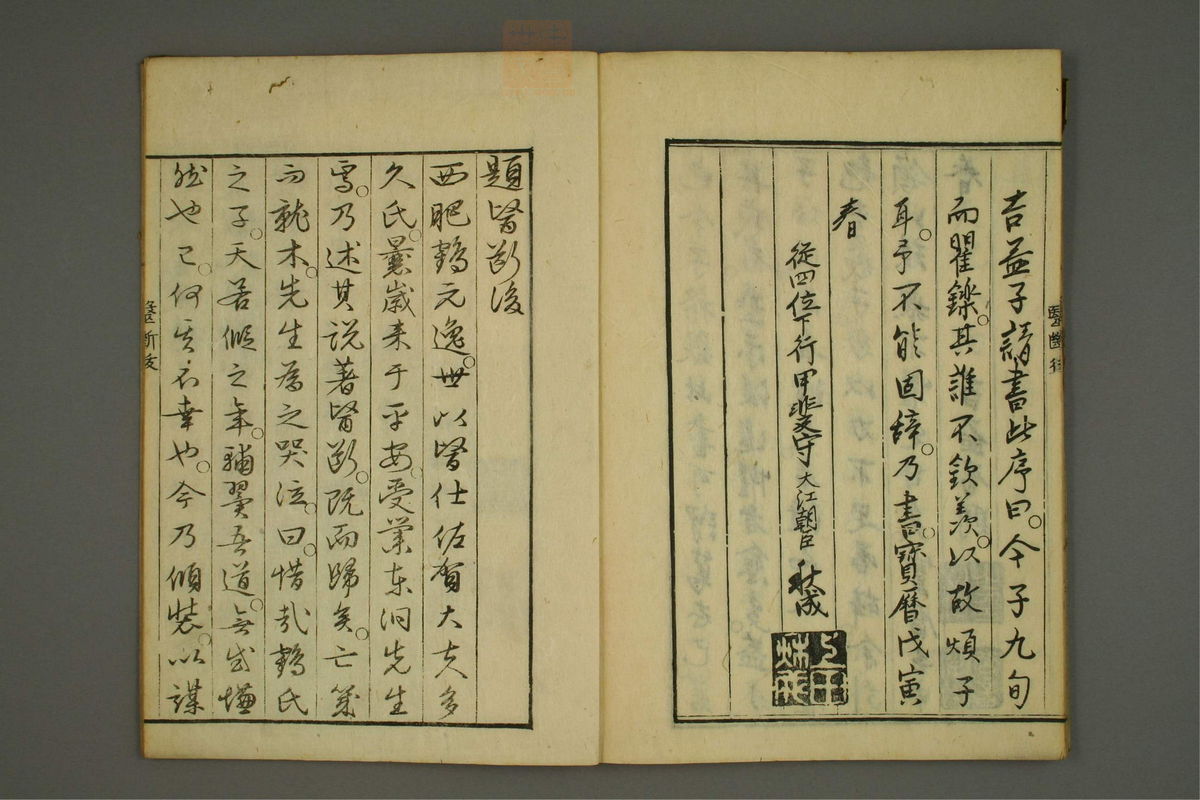 吉益子請書此序曰。今子九旬
而矍鑠。其誰不欽羨。以故煩子
耳。予不能固辞。乃書。寶曆戊寅
春
從四位下行甲斐守大江朝臣秋成
題醫斷後
西肥鶴元逸。世以醫仕佐賀大夫多
久氏。曩歲来于平安。受業東洞先生
焉。乃述其説著醫斷。既而歸矣。亡幾
而就木。先生為之哭泣。曰。惜哉鶴氏
之子。天若假之年。輔翼吾道。無或慊
然也已。何其不幸也。今乃傾装。以謀
醫斷後